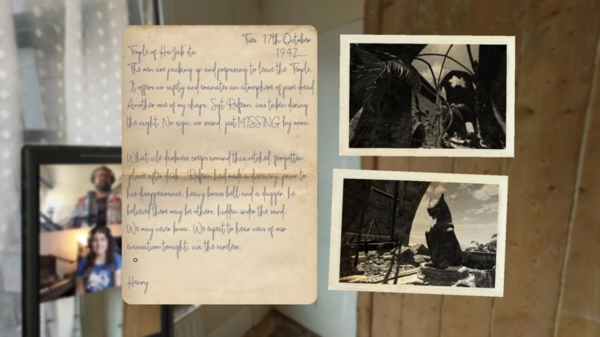 Tues. 17th October
1942
Temple of
The men are packing up and preparing to leave the Temple.
It offers no safety and emanates an atmosphere of pure dread.
Another one of my chaps, Sgt. was taken during
the night. No sign, no sound, just MISSING by morn.
What vile darkness creeps around this wretched, forgotten
place after dark. had made a discovery, prior to
his disappearance, heavy brass bell and a dagger. he
believed there may be others, hidden under the sand.
We may never know. We expect to hear news of our
evacuation tonight, via the wireless.
Henry